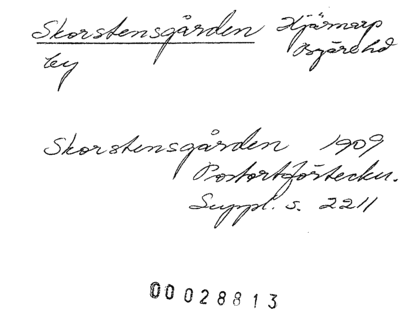 Skorstensgården Hjärnarp
by Bjäre hd
Skorstensgården 1909
Postortförteckn.
Suppl. s. 2211
00028813